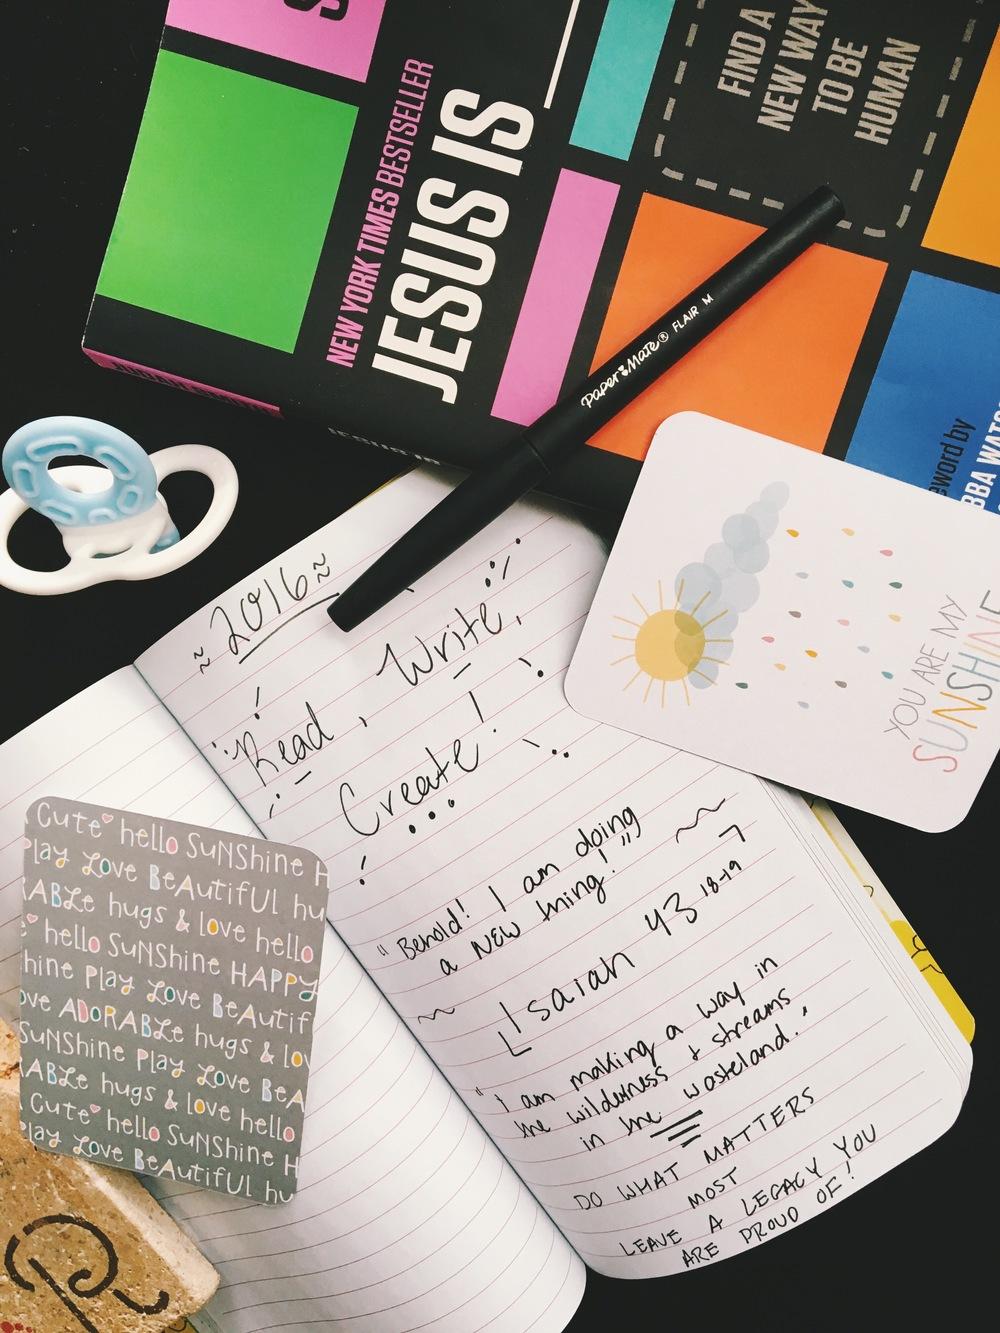 NEW YORK TIMES BESTSELLER
JESUS IS
FIND A
NEW WAY
TO BE
HUMAN
JESUS IS
Paper Mate® FLAIR M
YOU ARE MY
SUNSHINE
~ 2016 ~
Read, Write,
Create!
"Behold! I am doing
a NEW thing!"
[Isaiah 43 18-19]
"I am making a way in
the wilderness & streams
in the wasteland."
DO WHAT MATTERS
MOST
LEAVE A LEGACY YOU
ARE PROUD OF!
Cute hello SuNSHine H
Play Love BeAutifUL hu
ABLe hugs & love hello
hello SuNSHine HAPPY
hine Play Love BeAutif
ove ADORABLe hugs & lov
SuNSHine Play Love BeA
ABLe hugs & love hello
Cute hello SuNSHine H
Play Love BeAutifUL hu
R